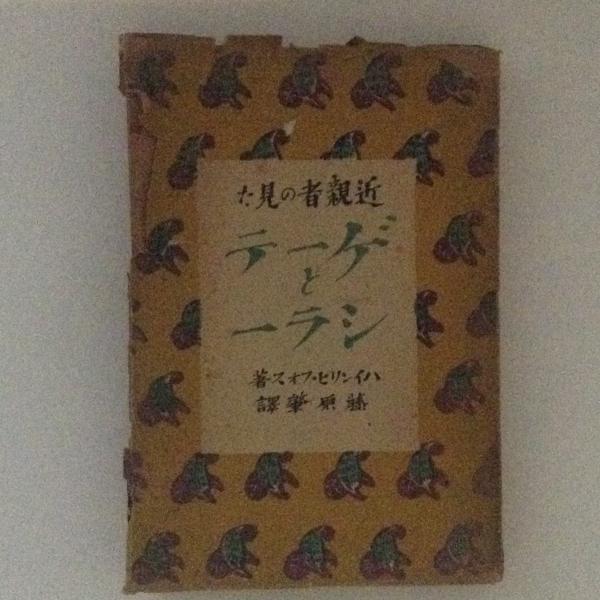 近親者の見た
ゲーテ
と
シラー
ハインリヒ・フオス著
藤原肇譯